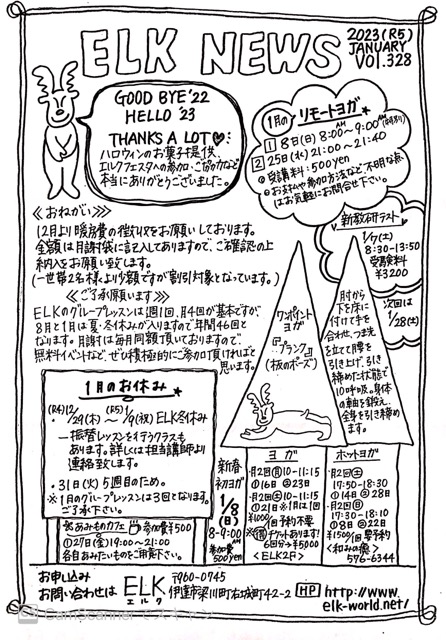 ELK NEWS
2023(R5)
JANUARY
VOl.328
GOOD BYE'22
HELLO '23
THANKS A LOT♥:
ハロウィンのお菓子提供、
エルクフェスタへの参加・ご協力など
本当にありがとうございました。
1月の リモートヨガ
1 8日(日) 8:00AM~9:00AM(特別)
2 25日(水) 21:00~21:40
◎受講料:500yen
◎お支払や参加方法など不明な点
はお気軽にお問合せ下さい。
≪おねがい≫
12月より暖房費の徴収をお願いしております。
金額は月謝袋に記入してありますので、ご確認の上
納入をお願い致します。
(一世帯2名様より少額ですが割引対象となっています。)
≪ご了承願います≫
ELKのグループレッスンは週1回、月4回が基本ですが、
8月と1月は夏・冬休みが入りますので年間46回と
なります。月謝は毎月同額頂いておりますので、
無料イベントなど、ぜひ積極的にご参加頂ければと
思います。
新教研テスト
1/7(土)
8:30-13:50
受験料
¥3200
次回は
1/28(土)
ワンポイント
ヨガ
『プランク』
(板のポーズ)
肘から
下を床に
付けて手を
合わせ、つま先
を立てて腰を
引き上げ、引き
締めた状態で
10呼吸。身体
の軸を鍛え、
全身を引き締め
ます。
1月のお休み
(R4)12/29(木)~(R5)1/9(祝) ELK冬休み
―振替レッスンを行うクラスも
あります。詳しくは担当講師より
連絡致します。
・31日(火) 5週目のため。
※1月のグループレッスンは3回となります。
ご了承下さい。
※あみものカフェ 参加費¥500
①27日(金)19:00~21:00
各自あみたいものをご用意下さい。
新春
初ヨガ
1/8
(日)
8-9:00AM
参加費
500yen
ヨガ
・月2回(月)10-11:15
①16日 ②23日
・月2回(土)10-11:15
①21日 ※1月は1回
¥1000/1回 予約不要
※チケットあります!
6回分→¥5000
<ELK2F>
ホットヨガ
・月2回(土)
17:50-18:30
①14日 ②28日
・月2回(日)
17:30-18:10
①8日 ②22日
¥1500/1回 要予約
<和みの癒>
576-6344
お申し込み
お問い合わせは ELK
エルク
〒960-0745
伊達市梁川町右城町42-2
HP http://www.
elk-world.net/
CamScanner